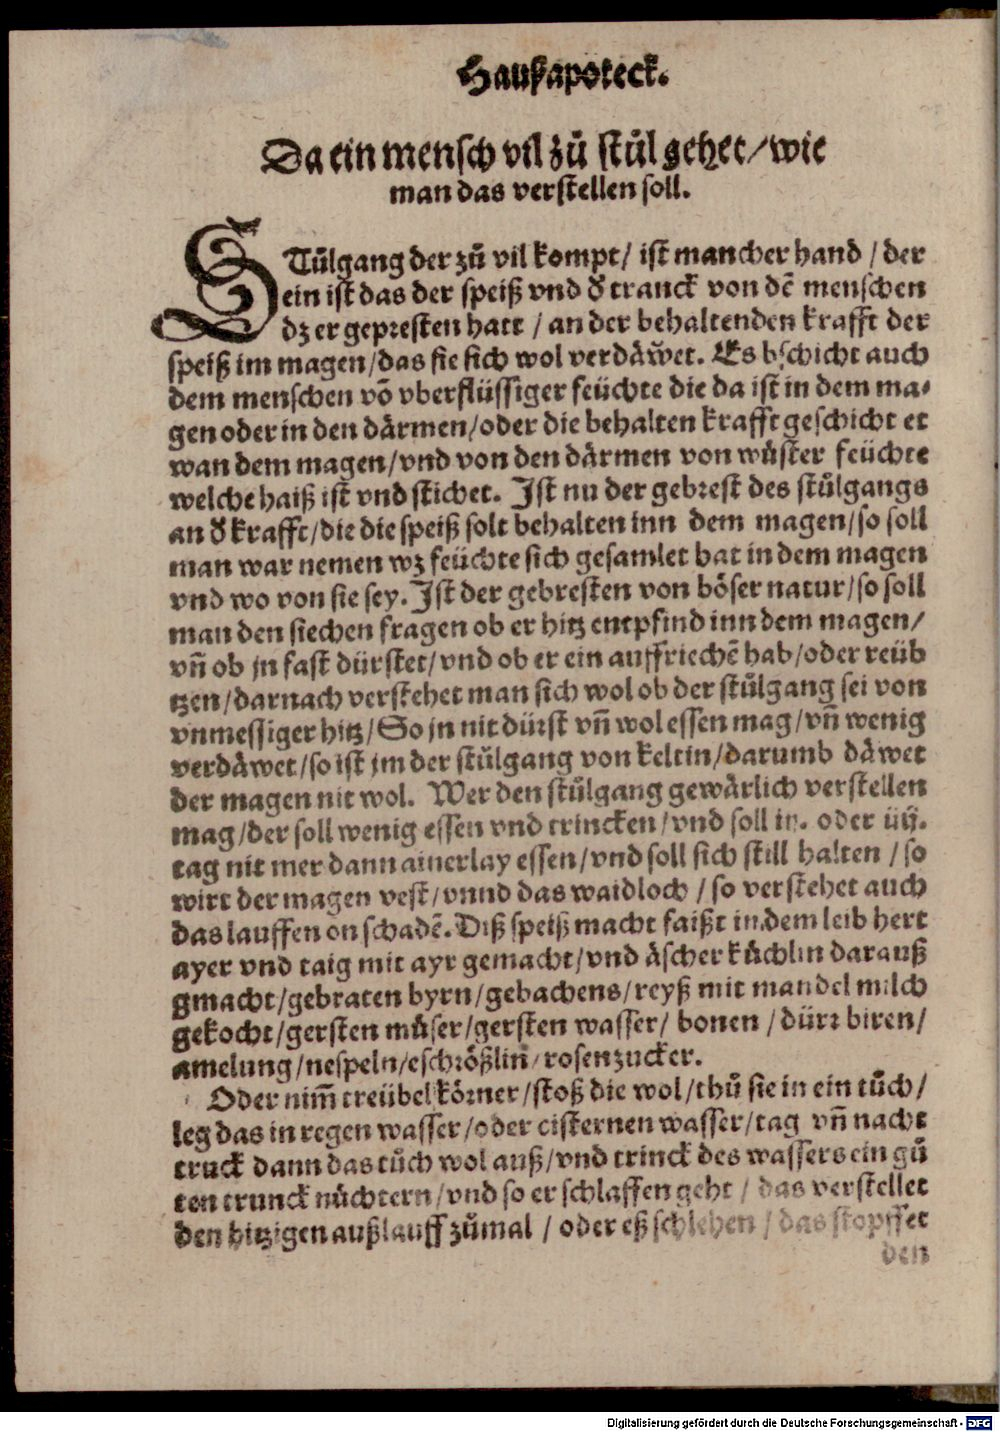 Haußapoteck.
Da ein mensch vil zů stůl gehet/ wie
man das verstellen soll.
STůlgang der zů vil kompt/ ist mancher hand / der
ein ist das der speiß vnd d̕ tranck von dē menschen
dz er gepresten hatt / an der behaltenden krafft der
speiß im magen/das sie sich wol verdåwet. Es bschicht auch
dem menschen võ vberflüssiger feüchte die da ist in dem ma-
gen oder in den därmen/oder die behalten krafft geschicht et
wan dem magen/vnd von den därmen von wůster feüchte
welche haiß ist vnd stichet. Ist nu der gebrest des stůlgangs
an d̕ krafft/die die speiß solt behalten inn dem magen/so soll
man war nemen wz feüchte sich gesamlet hat in dem magen
vnd wo von sie sey. Ist der gebresten von böser natur/so soll
man den siechen fragen ob er hitz entpfind inn dem magen/
vñ ob jn fast dürstet/vnd ob er ein auffriechē hab/oder reüb
tzen/darnach verstehet man sich wol ob der stůlgang sei von
vnmessiger hitz/So jn nit dürst vñ wol essen mag/vñ wenig
verdäwet/so ist jm der stůlgang von keltin/darumb däwet
der magen nit wol. Wer den stůlgang gewärlich verstellen
mag/der soll wenig essen vnd trincken/vnd soll iij. oder iiij.
tag nit mer dann ainerlay essen/vnd soll sich still halten / so
wirt der magen vest/vnnd das waidloch / so verstehet auch
das lauffen on schadē. Diß speiß macht faißt in dem leib hert
ayer vnd taig mit ayr gemacht/vnd äscher küchlin darauß
gmacht/gebraten byrn/gebachens/reyß mit mandel milch
gekocht/gersten můser/gersten wasser/ bonen / dürr biren/
amelung/nespeln/eschrößlin/ rosenzucker.
Oder nim̃ treübel körner/stoß die wol/thů sie in ein tůch/
leg das in regen wasser/oder cisternen wasser/tag vñ nacht
truck dann das tůch wol auß/vnd trinck des wassers ein gů
ten trunck nůchtern/vnd so er schlaffen geht / das verstellet
den hitzigen außlauff zůmal / oder eß schlehen / das stopffet
den
Digitalisierung gefördert durch die Deutsche Forschungsgemeinschaft - DFG